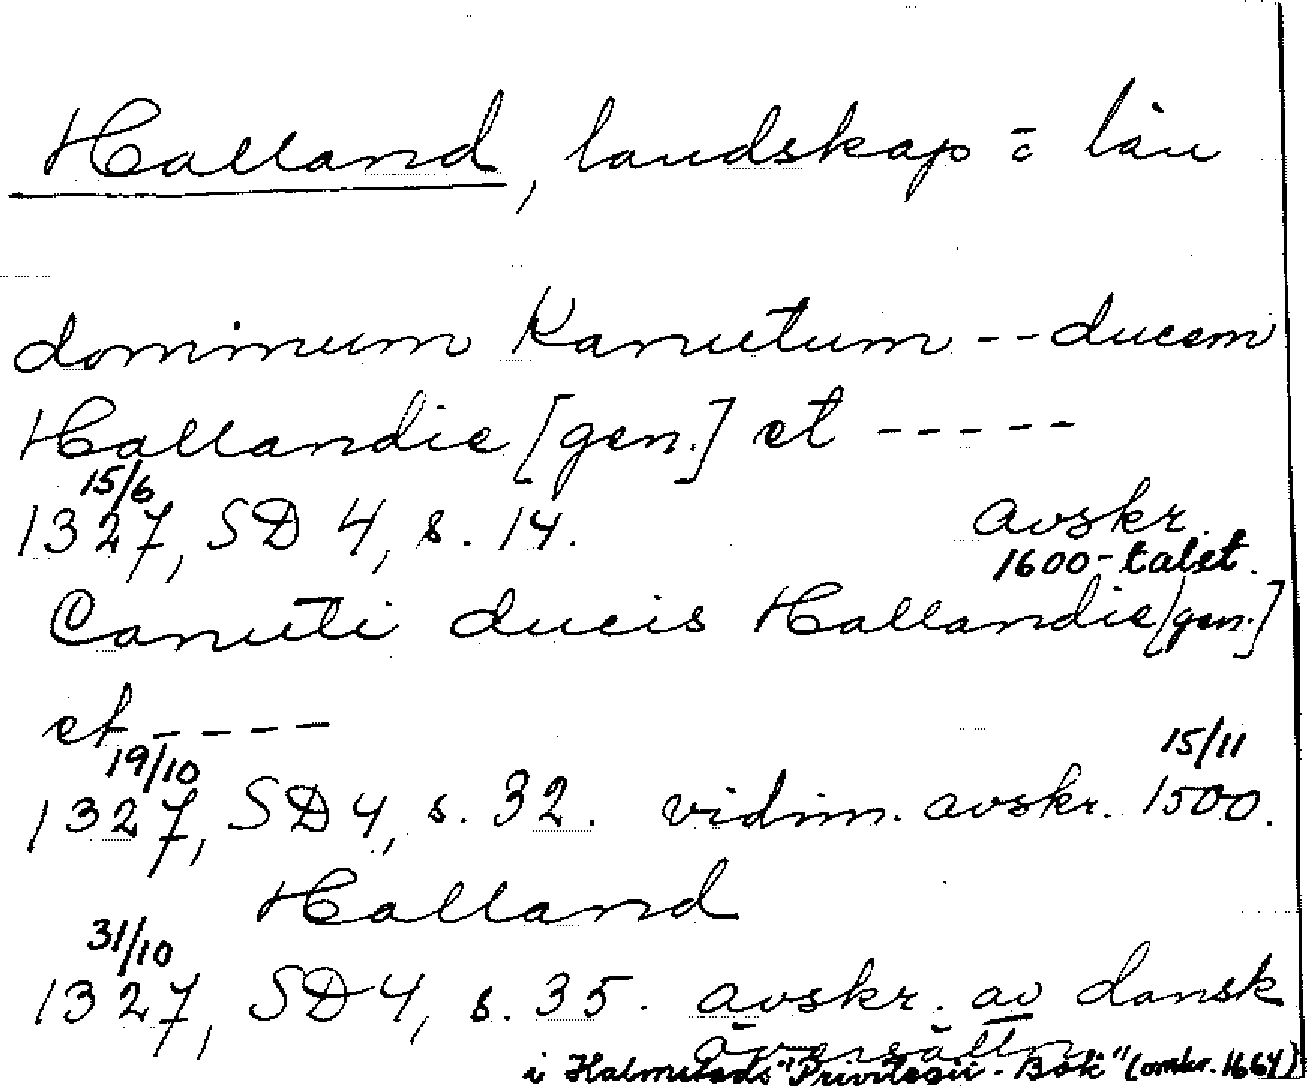 Halland, landskap = län
dominum Kanutum -- ducem
Hallandie [gen.] et -----
15/6
1327, SD 4, s. 14. avskr.
1600-talet.
Canuti ducis Hallandie [gen.]
et -----
19/10 15/11
1327, SD 4, s. 32. vidim. avskr. 1500.
Halland
31/10
1327, SD 4, s. 35. avskr. av dansk
översättn.
i Halmstads "Privilegii-Bok" (omkr. 1664)